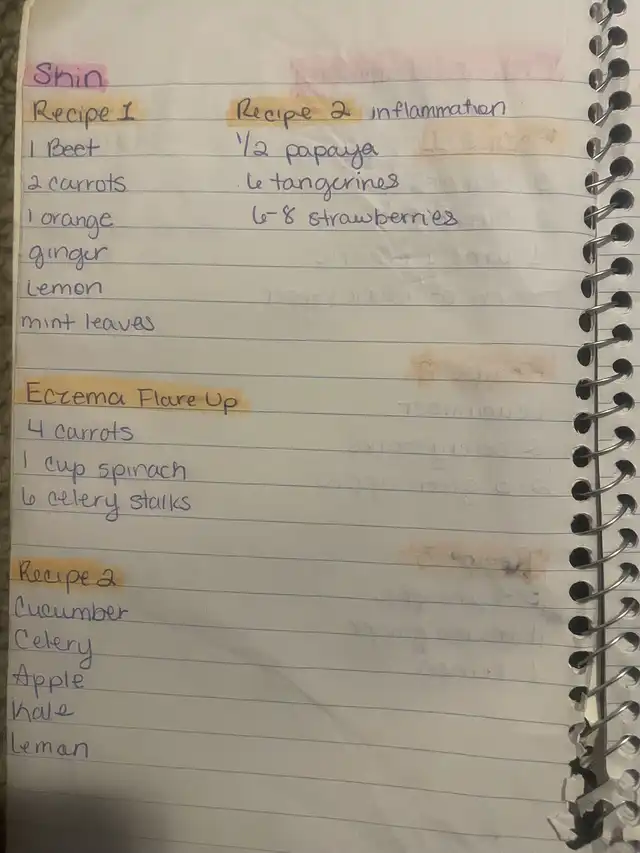 Skin
Recipe 1
1 Beet
2 carrots
1 orange
ginger
Lemon
mint leaves
Recipe 2 inflammation
1/2 papaya
6 tangerines
6-8 strawberries
Eczema Flare Up
4 carrots
1 cup spinach
6 celery stalks
Recipe 2
Cucumber
Celery
Apple
Kale
Leman